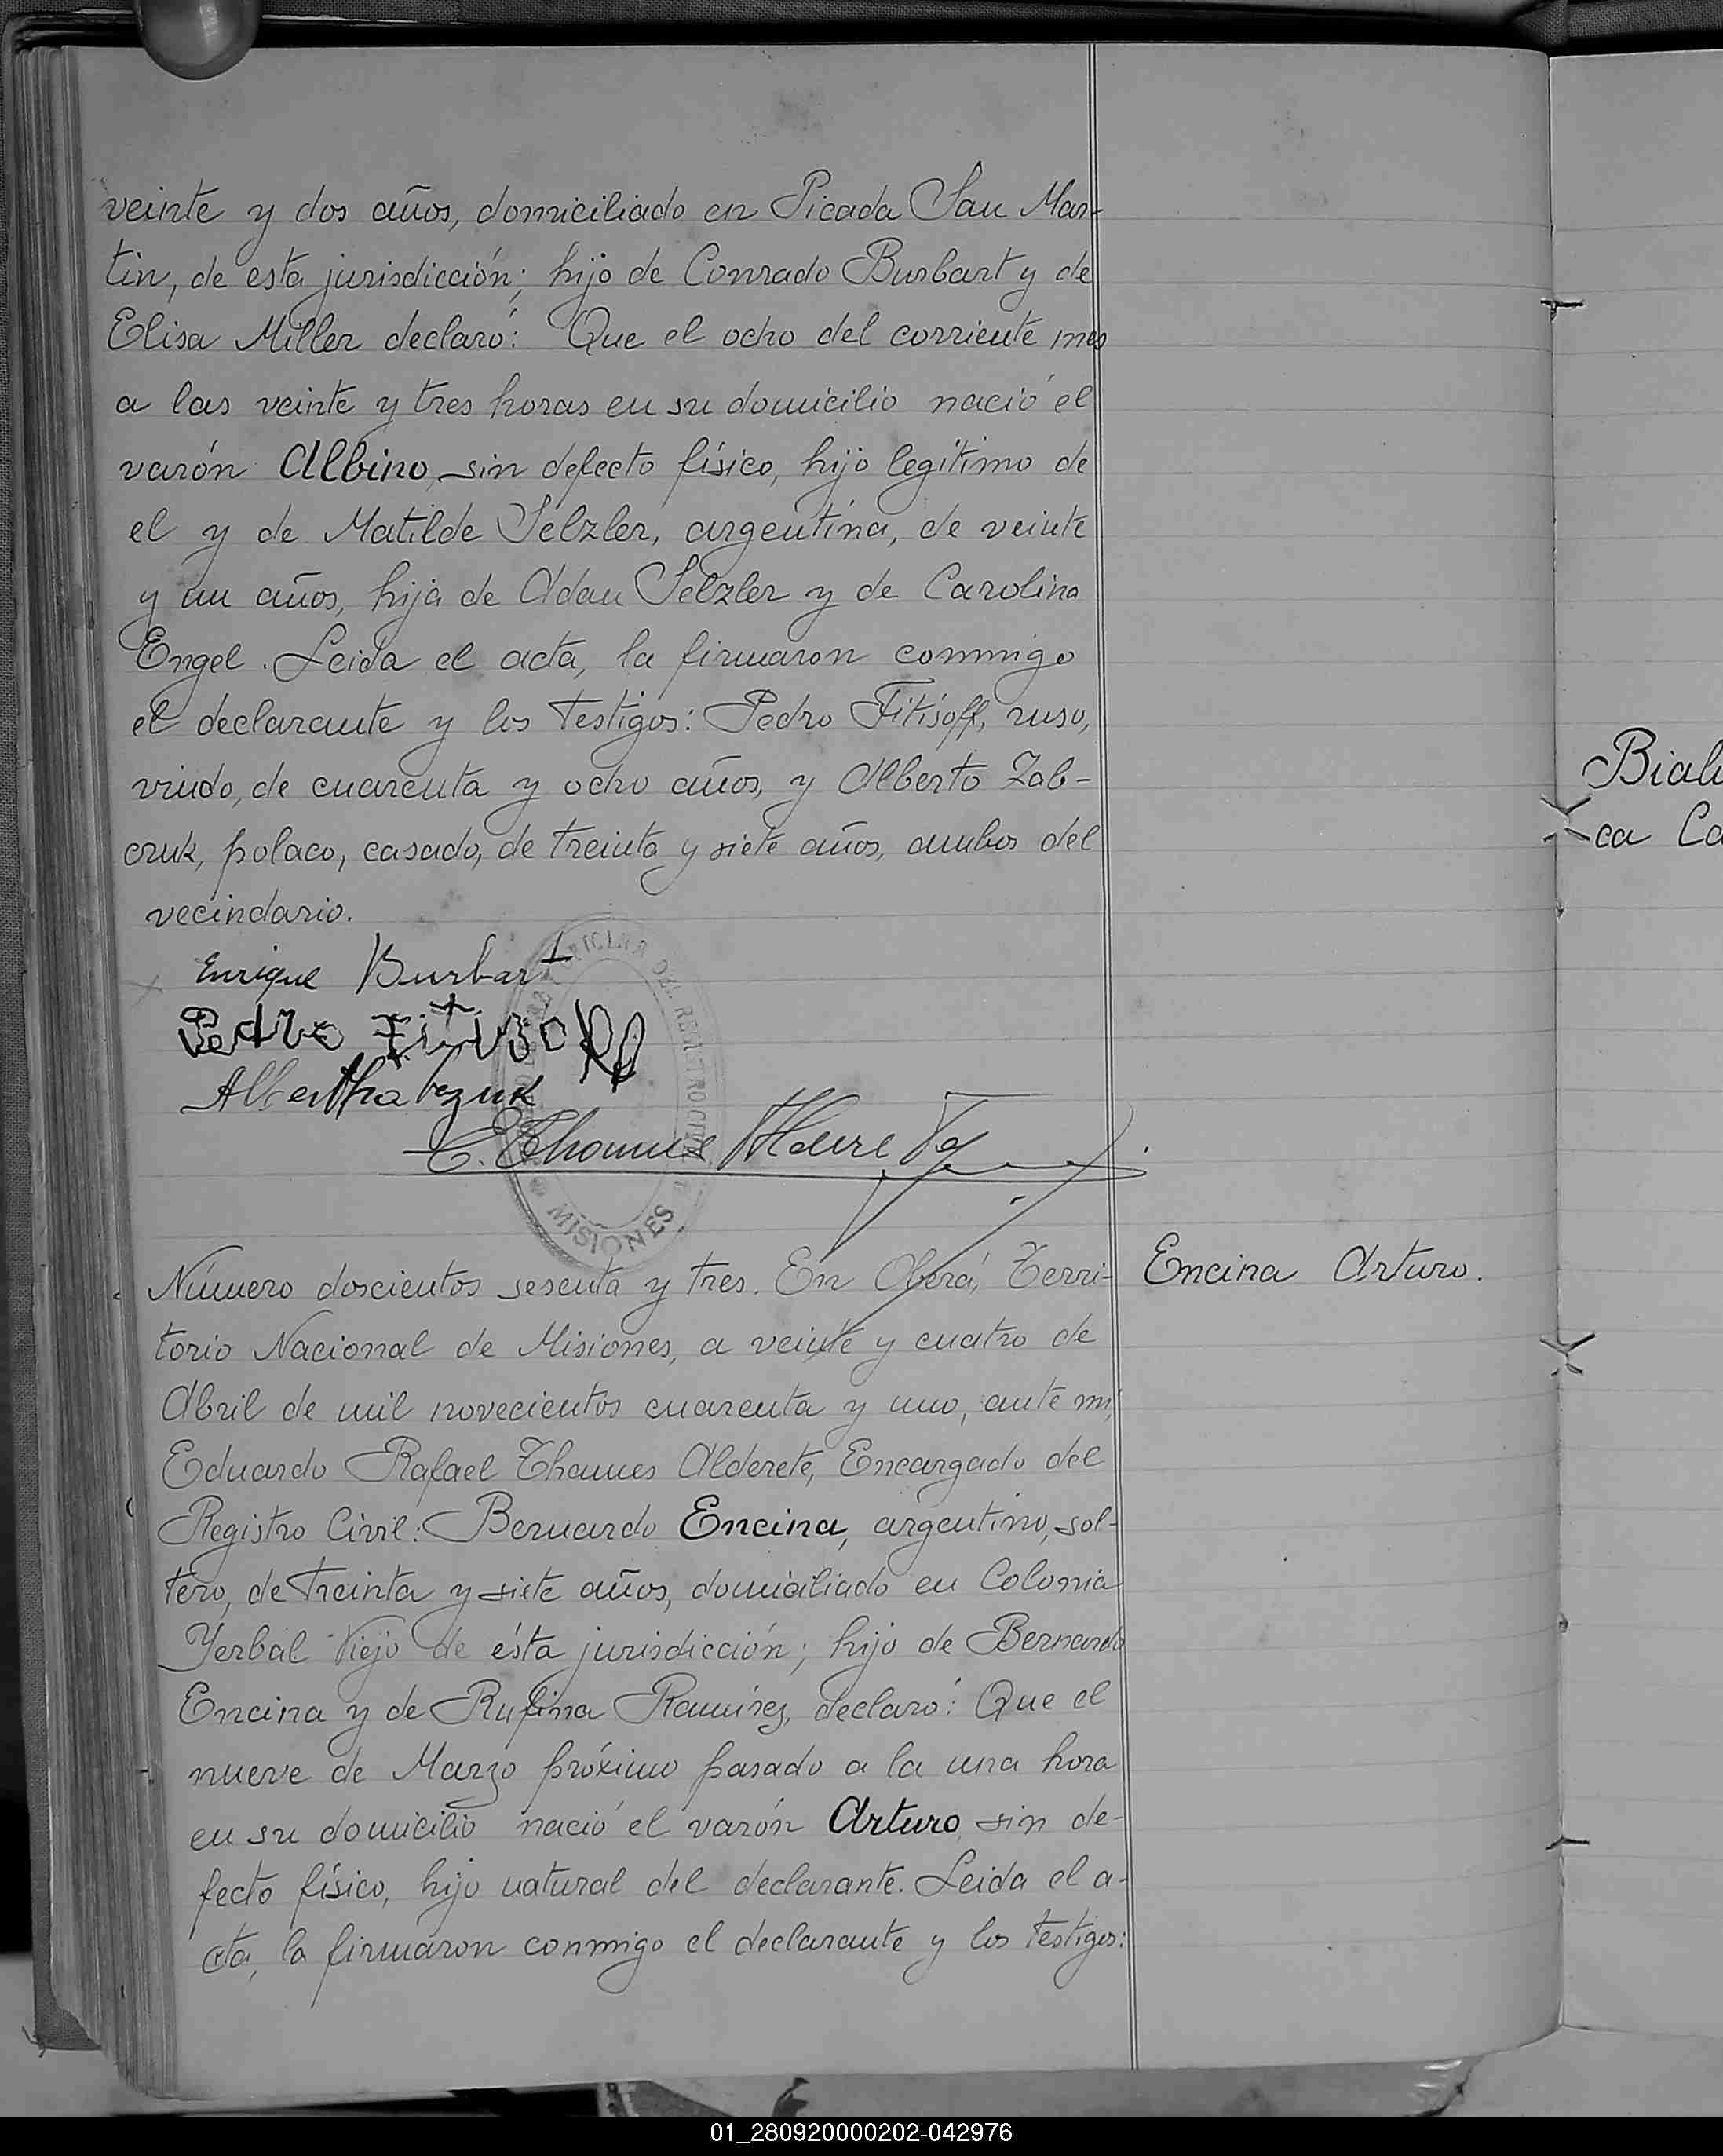 veinte y dos años, domiciliado en Picada San Mar-
tin, de esta jurisdicción; hijo de Conrado Burbart y de
Elisa Miller declaró: Que el ocho del corriente mes
a las veinte y tres horas en su domicilio nació el
varón Albino, sin defecto físico, hijo legítimo de
el y de Matilde Selzler, argentina, de veinte
y un años, hija de Adan Selzler y de Carolina
Engel. Leida el acta, la firmaron conmigo
el declarante y los testigos: Pedro Fitisoff, ruso,
viudo, de cuarenta y ocho años, y Alberto Zab-
czuk, polaco, casado, de treinta y siete años, ambos del
vecindario.
Enrique Burbart
Pedro
E. Thames Alderete
OFICINA DEL REGISTRO CIVIL
MISIONES
Número doscientos sesenta y tres. En Oberá, Terri-
torio Nacional de Misiones, a veinte y cuatro de
Abril de mil novecientos cuarenta y uno, ante mi,
Eduardo Rafael Thames Alderete, Encargado del
Registro Civil: Bernardo Encina, argentino, sol-
tero, de treinta y siete años, domiciliado en Colonia
Yerbal Viejo de ésta jurisdicción; hijo de Bernardo
Encina y de Rufina Ramírez, declaró: Que el
nueve de Marzo próximo pasado a la una hora
en su domicilio nació el varón Arturo, sin de-
fecto físico, hijo natural del declarante. Leida el a-
cta, la firmaron conmigo el declarante y los testigos:
Encina Arturo.
Bial
ca Ca
01_280920000202-042976